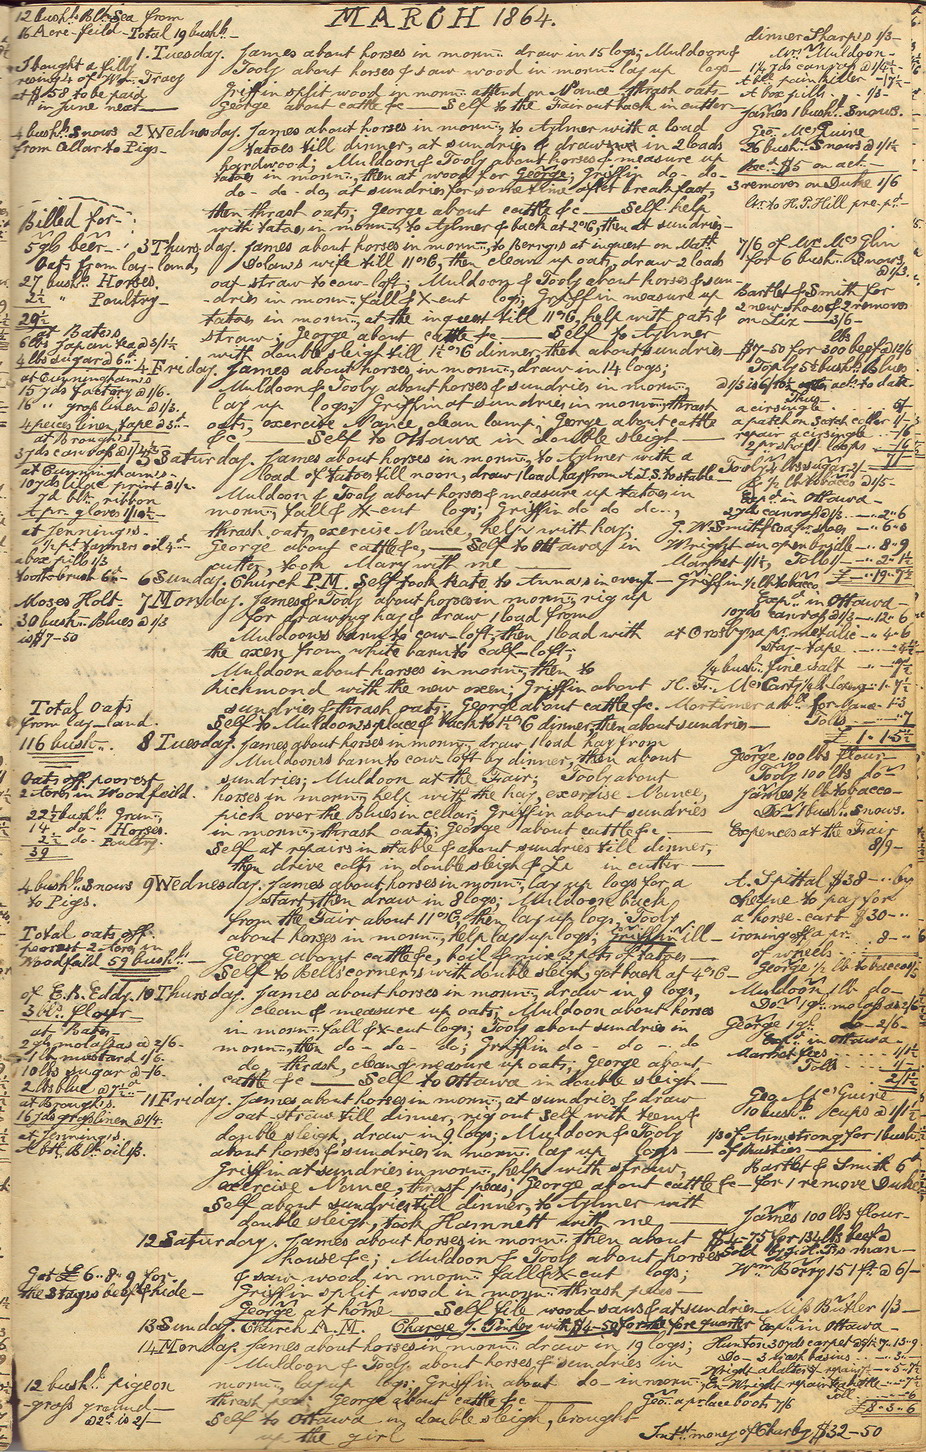 MARCH 1864.
12 bushls Blk Sea from
16 Acre-feild-Total 19 bushls-
I bought a filly
rising 4 of Wm. Tracy
at $58 to be paid
in June next-
1. Tuesday. James about horses in morng. draw in 15 logs; Muldoon &
Tooly about horses & saw wood in morng. lay up logs-
Griffin split wood in morng. attend on Nance thrash oats-
George about cattle &c - Self to the Fair out back in cutter-
dinner Sharp's 1/3-
Mrs Muldoon-
A bll pain killer -
A box pills - 1/3-
James 1 bushl. Snows.
4 bushls Snows
from Cellar to Pigs-
2 Wednesday. James about horses in morng., to Aylmer with a load
tatoes till dinner, at sundries & draw in 2 loads
hardwood; Muldoon & Tooly about horses & measure up
tatoes in morng., then at wood for George; Griffin do- do-
do- do- do, at sundries for some time after breakfast,
then thrash oats; George about cattle &c - Self help
with tatoes in morng., to Aylmer & back at 2 o'C, then at sundries-
Geo. McGuire
26 bushl. Snows @ 1/1½
Recd. $5 on act-
3 removes on Duke 1/6
Billed for
5 gls beer-
Oats from lay-land,
27 bushls. Horses.
2½ " Poultry-
29½
3 Thursday. James about horses in morng., to Berry's at inquest on Matt.
Dolan's wife till 11 o'C, then clean up oats, draw 2 loads
oat-straw to cow-loft; Muldoon & Tooly about horses & sun-
dries in morng. fall & X-cut logs; Griffin measure up
tatoes in morng., at the inquest till 11 o'C, help with oats &
straw; George about cattle &c - Self to Aylmer
with double sleigh till 1½ o'C dinner, then about sundries-
7/6 of Mr. McGlin
for 6 bush. Snows
@ 1/3.
Bartlet & Smith for
2 new shoes & 2 removes
on Liz - 3/6-
lbs
$7-50 for 300 beef @ 12/6
at Bates
6 lbs Japan tea @ 3/1½
4 lbs sugar @ 6d.
at Cunningham's
15 yds factory @ 1/6.
16 " grass linen @ 1/3.
4 pieces linen tape @ 3d-
at Brough's
3 yds canvas @ 1/4½
4 Friday. James about horses in morng., draw in 14 logs;
Muldoon & Tooly about horses & sundries in morng.,
lay up logs; Griffin at sundries in morng., thrash
oats, exercise Nance, clean lamp; George about cattle
&c - Self to Ottawa in double sleigh-
Tooly 5 bushl. Blues
a cirsingle
a patch on Scotch collar
repair a cirsingle
2 breast loops
at Cunningham's
10 yds lilac print @ 1/2.
7 yd blk. ribbon
A pr. gloves 1/10½-
at Jenning's
½ pt tanners oil
a box pills 1/3
tooth brush 6d-
5 Saturday. James about horses in morng., to Aylmer with a
load of tatoes till noon, draw 1 load hay from A.J.S. to stable-
Muldoon & Tooly about horses & measure up tatoes in
morng., fall & X-cut logs; Griffin do do do..,
thrash oats, exercise Nance, help with hay;
George about cattle &c, - Self to Ottawa in
cutter, took Mary with me -
Tooly 4 lbs sugar 2/-
& ½ lb tobacco @ 1/5-
Expd. in Ottawa-
2 yds canvas @ 1/3. - .. 2 .. 6
J. W. Smith for a pr. shoes - .. 6 .. 3
Wright an open bridle - .. 8 .. 9
£ - .. 19 .. 7½
6 Sunday. Church P.M. Self took Kate to Anna's in eveng.-
Griffin ½ lb tobacco
Moses Holt
30 bush. Blues @ 1/3
is $7-50
7 Monday. James & Tooly about horses in morng., rig up
for drawing hay & draw 1 load from
Muldoon's barn to cow-loft, then 1 load with
the oxen from white barn to calf-loft;
Muldoon about horses in morng., then to
Richmond with the new oxen; Griffin about
sundries & thrash oats; George about cattle &c.
Self to Muldoon's place & back to 1½ o'C dinner, then about sundries-
Expd. in Ottawa-
10 yds canvas @ 1/3- .. 12 .. 6
at Crosby's a pr. metalic - .. 4 .. 6
stay-tape
¼ bush. fine salt
Tolls
£ 1 .. 1 .. 5½
Total Oats
from lay-land.
116 bush.
Oats off poorest
2 acres in Woodfeild.
22½ bushls Gran..
14 do- Horses.
2½ do- Poultry.
39
8 Tuesday. James about horses in morng. draw 1 load hay from
Muldoon's barn to cow-loft by dinner, then about
sundries; Muldoon at the Fair; Tooly about
horses in morng., help with the hay, exercise Nance,
pick over the Blues in cellar; Griffin about sundries
in morng., thrash oats; George about cattle &c -
Self at repairs in stable & about sundries till dinner,
then drive colts in double sleigh & Liz in cutter-
George 100 lbs flour-
Tooly 100 lbs do-
James ½ lb tobacco-
Do- 1 bushl. Snows.
Expences at the Fair
8/9-
4 bushls Snows
to Pigs.
Total oats off
poorest 2 acres in
Woodfeild 59 bushls-
9 Wednesday. James about horses in morng., lay up logs for a
start, then draw in 8 logs; Muldoon back
from the Fair about 11 o'C, then lay up logs; Tooly
about horses in morng., help lay up logs; Griffin ill-
George about cattle &c, boil & mix 2 pots of tatoes-
Self to Bell's corners with double sleigh, got back at 4 o'C-
A. Spittal $38 - .. by
cheque to pay for
a horse-cart $30 - ..
ironing off a pr.
of wheels - 8 - ..
George ½ lb tobacco
of E. B. Eddy
3 bls. Flour
at Bates-
2 gls molasses @ 2/6-
1 lb mustard 1/6-
10 lbs sugar @ -/6-
2 lbs blue @ 7½d
at Brough's
16 yds grass linen @ 1/4.
at Jenning's.
A bot. Blk. oil 1/3.
10 Thursday. James about horses in morng., draw in 9 logs,
clean & measure up oats; Muldoon about horses
in morng. fall & X-cut logs; Tooly about sundries in
morng., then do- do- do; Griffin do- do- do
do, thrash, clean & measure up oats; George about
cattle &c - Self to Ottawa in double sleigh-
Muldoon 1 lb do-
Do- 1 gl. molasses 2/6
George 1 gl. do- 2/6-
Expd. in Ottawa-
Market fees - 1/1½
Tolls
2/1½
11 Friday. James about horses in morng., at sundries & draw
oat-straw till dinner, rig out Self with team &
double sleigh, draw in 9 logs; Muldoon & Tooly
about horses & sundries in morng. lay up logs-
Griffin at sundries in morng., help with straw,
exercise Nance, thrash peas; George about cattle &c-
Self about sundries till dinner, to Aylmer with
double sleigh, took Hamnett with me -
Geo. McGuire
10 bush. cups @ 1/1½-
1/3 of Armstrong for 1 bush.
of Rusties-
Bartlet & Smith 6d
for 1 remove Duke
James 100 lbs flour-
Got £6 .. 8 .. 9 for
the Stag's beef & hide-
12 Saturday. James about horses in morng. then about
house &c; Muldoon & Tooly about horses
& saw wood in morng. fall & X-cut logs;
Griffin split wood in morng. thrash peas-
George at home - Self file wood saws & at sundries-
$4-75 for 134 lbs beef @
Wm Berry 151 ft. @ 6/-
Miss Butler 1/3-
13 Sunday. Church A.M. Charge J. Pinkey with $4-50 for the fore quarter
Expd. in Ottawa-
12 bushl. pigeon
grass ground-
@ 2d. is 2/-
14 Monday. James about horses in morng. draw in 19 logs;
Muldoon & Tooly about horses & sundries in
morng., lay up logs; Griffin about do- in morng.,
thrash peas; George about cattle &c -
Self to Ottawa in double sleigh, brought
up the girl -
Hunton 30 yds carpet
Do- 3 wash basins
Wright a halter & repair
£8 .. 3 .. 6
Geo. a place book 7/6
Intst. money of Charby $32-50